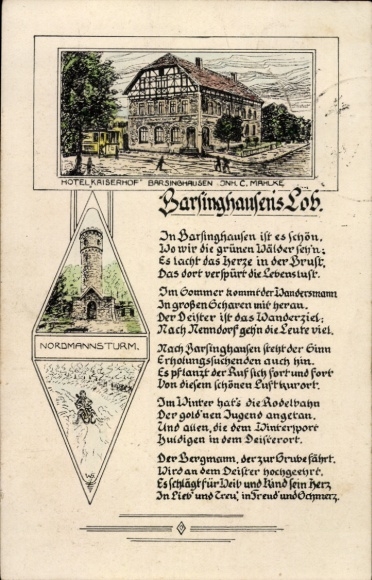 HOTEL „KAISERHOF" BARSINGHAUSEN JNH. C. MAHLKE
Barsinghausens Lob.
In Barsinghausen ist es schön,
Wo wir die grünen Wälder seh'n;
Es lacht das Herze in der Brust,
Das dort verspürt die Lebenslust.
Im Sommer kommt der Wandersmann
In großen Scharen mit heran.
Der Deister ist das Wanderziel;
Nach Nenndorf geh'n die Leute viel.
Nach Barsinghausen steht der Sinn
Erholungsuchenden auch hin.
Es pflanzt der Ruf sich fort und fort
Von diesem schönen Luftkurort.
Im Winter hat's die Rodelbahn
Der gold'nen Jugend angetan.
Und allen, die dem Wintersport
Huldigen in dem Deisterort.
Der Bergmann, der zur Grube fährt,
Wird an dem Deister hochgeehrt.
Es schlägt für Weib und Kind sein Herz
In Lieb' und Treu', in Freud' und Schmerz.
NORDMANNSTURM.